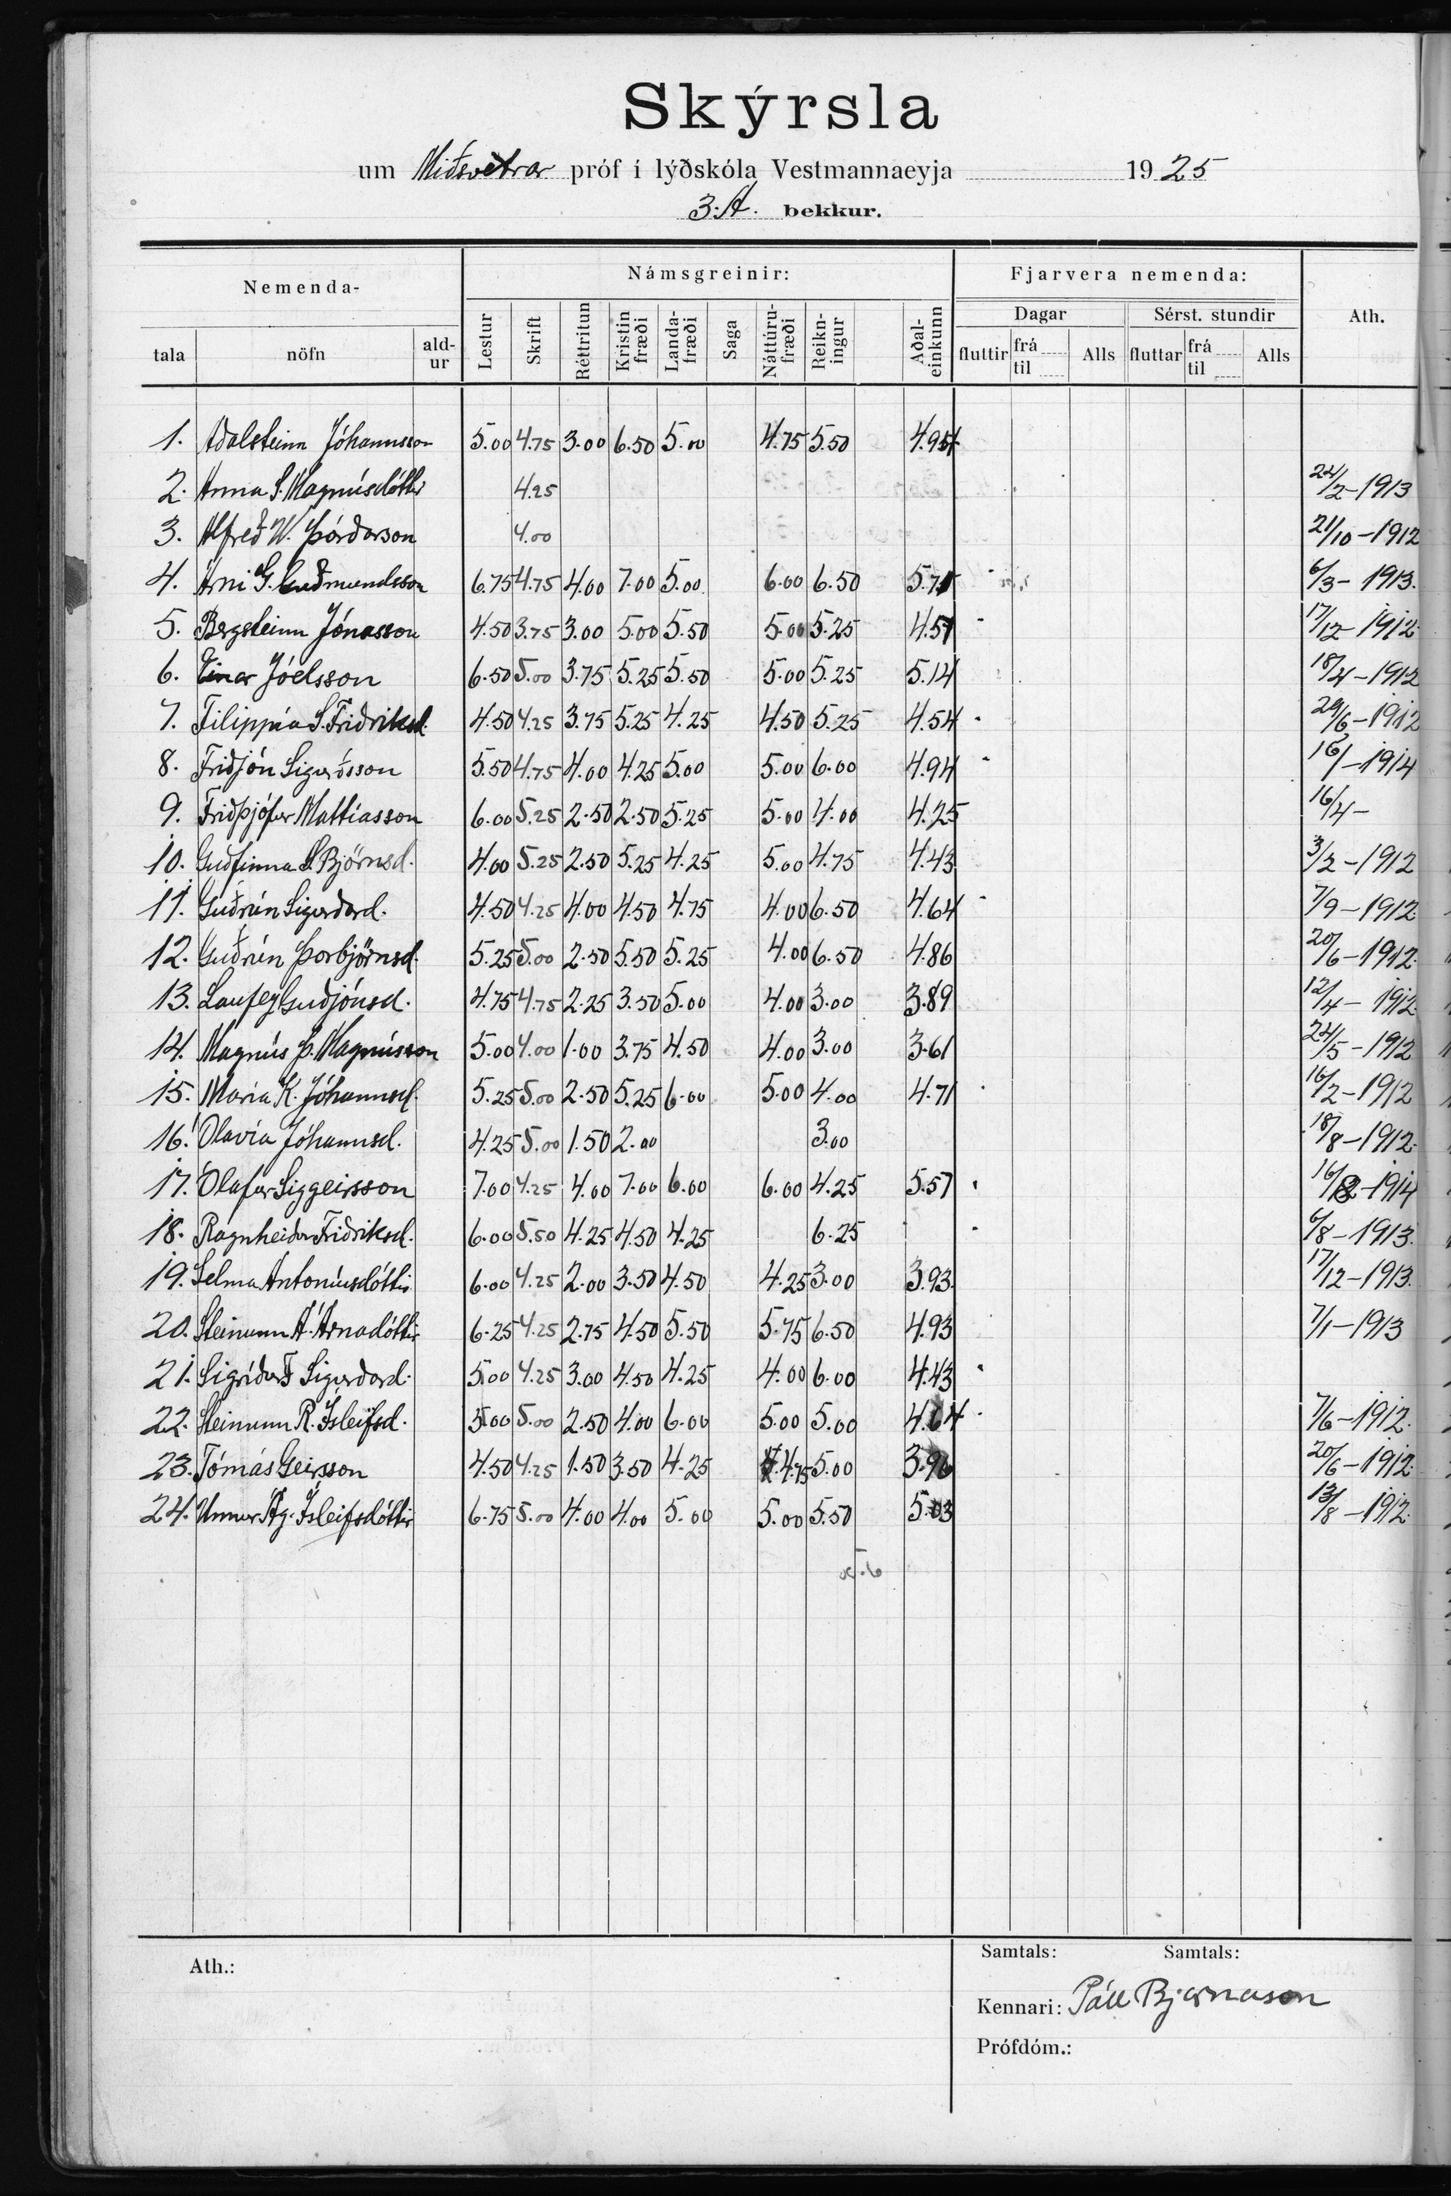 Skýrsla
um Miðsvetrar próf í lýðskóla Vestmannaeyja 1925
3.A. bekkur.
Nemenda- Námsgreinir: Fjarvera nemenda: Ath.
Dagar Sérst. stundir
tala nöfn ald-ur Lestur Skrift Réttritun Kristin fræði Landa-fræði Saga Náttúru-fræði Reikn-ingur Aðal-einkunn fluttir frá til Alls fluttar frá til Alls
1. Aðalsteinn Jóhannsson 5.00 4.75 3.00 6.50 5.00 4.75 5.50 4.954
2. Anna S. Magnúsdóttir 4.25 22/2-1913
3. Alfreð W. Þórðarson 4.00 21/10-1912
4. Árni G. Guðmundsson 6.75 4.75 4.00 7.00 5.00 6.00 6.50 5.71 6/3-1913.
5. Bergsteinn Jónasson 4.50 3.75 3.00 5.00 5.50 5.00 5.25 4.57 17/12-1912
6. Einar Jóelsson 6.50 5.00 3.75 5.25 5.50 5.00 5.25 5.14 18/4-1912
7. Filippía S. Friðriksd. 4.50 4.25 3.75 5.25 4.25 4.50 5.25 4.54 29/6-1912
8. Friðjón Sigurðsson 5.50 4.75 4.00 4.25 5.00 5.00 6.00 4.94 16/1-1914
9. Friðþjófur Mattíasson 6.00 5.25 2.50 2.50 5.25 5.00 4.00 4.25 16/4-
10. Guðfinna S. Björnsd. 4.00 5.25 2.50 5.25 4.25 5.00 4.75 4.43 3/2-1912
11. Guðrún Sigurðard. 4.50 4.25 4.00 4.50 4.75 4.00 6.50 4.64 7/9-1912
12. Guðrún Þorbjörnsd. 5.25 5.00 2.50 5.50 5.25 4.00 6.50 4.86 20/6-1912.
13. Laufey Guðjónsd. 4.75 4.75 2.25 3.50 5.00 4.00 3.00 3.89 12/4-1912
14. Magnús Þ. Magnússon 5.00 4.00 1.00 3.75 4.50 4.00 3.00 3.61 24/5-1912
15. María K. Jóhannsd. 5.25 5.00 2.50 5.25 6.00 5.00 4.00 4.71 16/2-1912
16. Ólavía Jóhannsd. 4.25 5.00 1.50 2.00 3.00 18/8-1912.
17. Ólafur Siggeirsson 7.00 4.25 4.00 7.00 6.00 6.00 4.25 5.57 -1914
18. Ragnheiður Friðriksd. 6.00 5.50 4.25 4.50 4.25 6.25 6/8-1913.
19. Selma Antoníusdóttir 6.00 4.25 2.00 3.50 4.50 4.25 3.00 3.93. 17/12-1913.
20. Steinunn Á. Árnadóttir 6.25 4.25 2.75 4.50 5.50 5.75 6.50 4.93 7/1-1913
21. Sigríður F Sigurðard. 5.00 4.25 3.00 4.50 4.25 4.00 6.00 4.43
22. Steinunn R. Ísleifsd. 5.00 5.00 2.50 4.00 6.00 5.00 5.00 4.64 7/6-1912.
23. Tómás Geirsson 4.50 4.25 1.50 3.50 4.25 4.75 5.00 3.96 20/6-1912.
24. Unnur Ág. Ísleifsdóttir 6.75 5.00 4.00 4.00 5.00 5.00 5.50 5.03 13/8-1912.
Ath.: Samtals: Samtals:
Kennari: Páll Bjarnason
Prófdóm.: